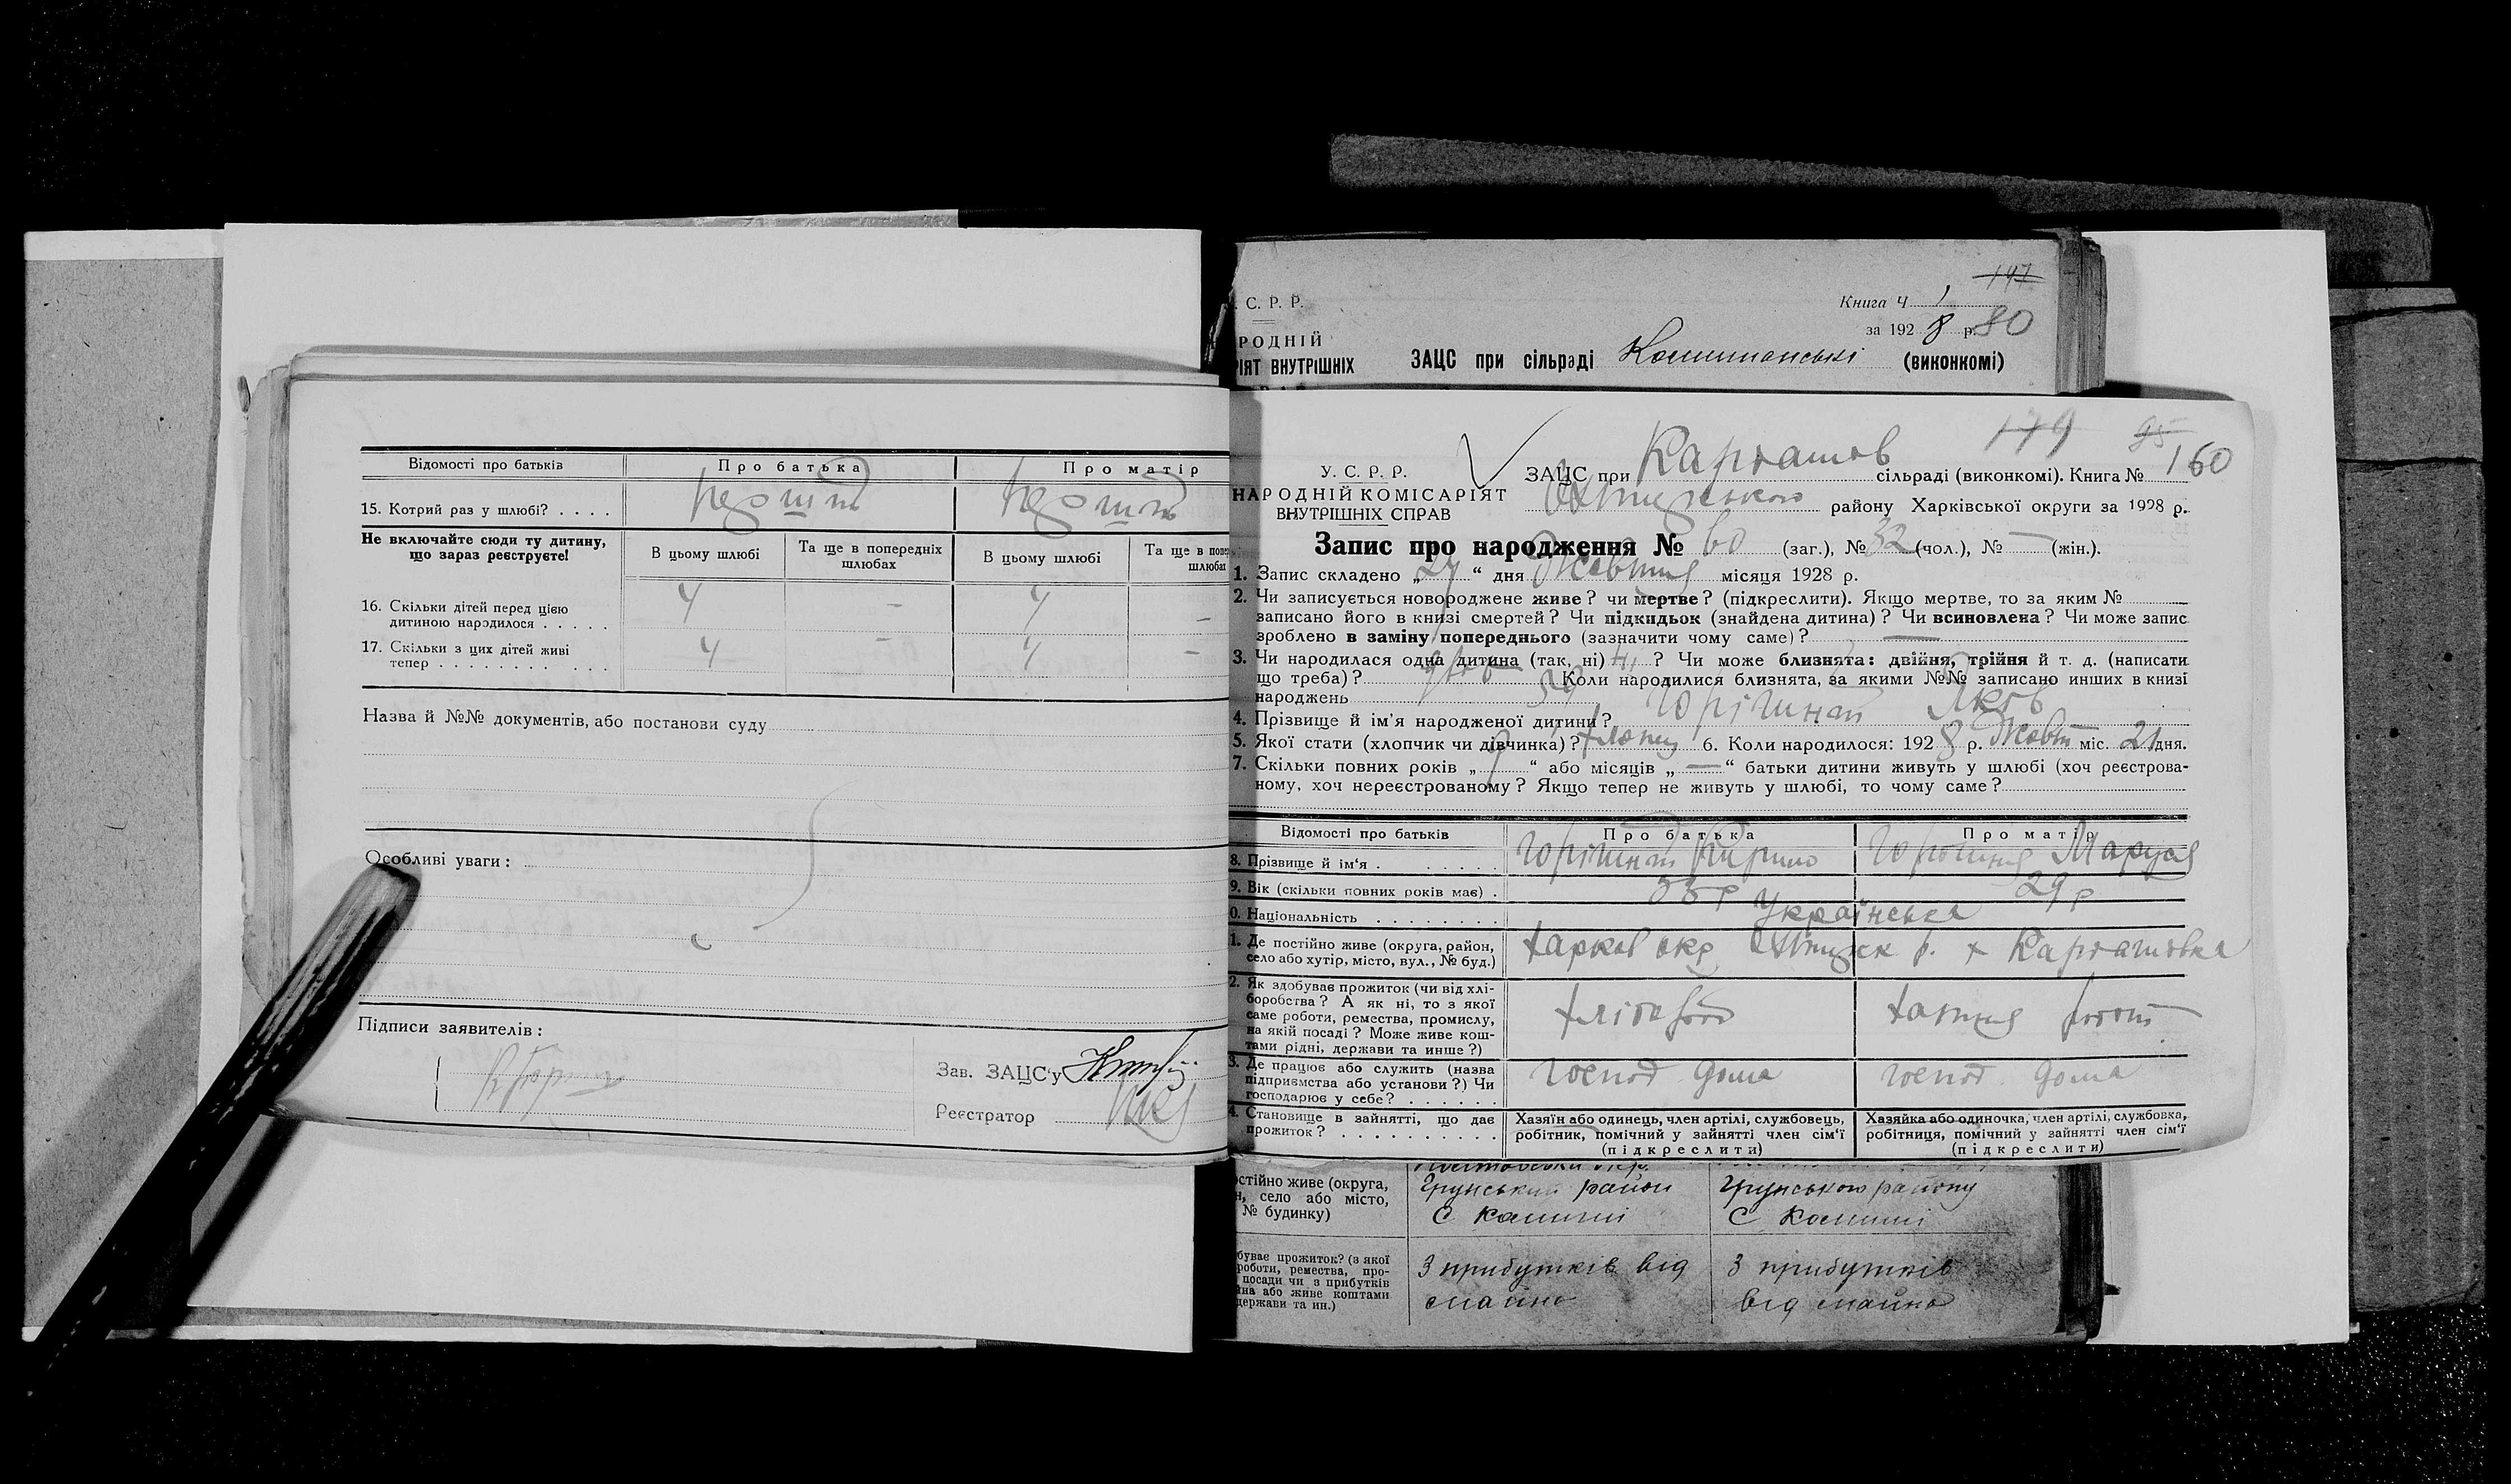 Відомості про батьків Про батька Про матір
15. Котрий раз у шлюбі? . . . .
Не включайте сюди ту дитину,
що зараз реєструєте!
В цьому шлюбі Та ще в попередніх
шлюбах В цьому шлюбі
16. Скільки дітей перед цією
дитиною народилося . . . . . 4 – 4 –
17. Скільки з цих дітей живі
тепер . . . . . . . . . . . 4 – 4 –
Назва й №№ документів, або постанови суду
Особливі уваги:
Підписи заявителів:
Зав. ЗАЦС'у
Реєстратор
147
. С. Р. Р. Книга Ч 1
за 1928 р. 80
РОДНІЙ
ІЯТ ВНУТРІШНІХ ЗАЦС при сільраді (виконкомі)
179 95
У. С. Р. Р. ЗАЦС при Карташов сільраді (виконкомі). Книга № 160
НАРОДНІЙ КОМІСАРІЯТ
ВНУТРІШНІХ СПРАВ Охтирського району Харківської округи за 1928 р.
Запис про народження № 60 (заг.), № 32 (чол.), № — (жін.).
1. Запис складено „24“ дня Жовтня місяця 1928 р.
2. Чи записується новороджене живе? чи мертве? (підкреслити). Якщо мертве, то за яким №
записано його в книзі смертей? Чи підкидьок (знайдена дитина)? Чи всиновлена? Чи може запис
зроблено в заміну попереднього (зазначити чому саме)? —
3. Чи народилася одна дитина (так, ні) ні? Чи може близнята: двійня, трійня й т. д. (написати
що треба)? Коли народилися близнята, за якими №№ записано инших в книзі
народжень 59
4. Прізвище й ім'я народженої дитини? Яков
5. Якої стати (хлопчик чи дівчинка)? хлопец 6. Коли народилося: 1928 р. Жовт міс. 21 дня.
7. Скільки повних років „9“ або місяців „—“ батьки дитини живуть у шлюбі (хоч реєстрова-
ному, хоч нереєстрованому? Якщо тепер не живуть у шлюбі, то чому саме?
Відомості про батьків Про батька Про матір
8. Прізвище й ім'я . Маруся
9. Вік (скільки повних років має) . 33 р 29 р
0. Національність . . . . . . . . Українська
1. Де постійно живе (округа, район,
село або хутір, місто, вул., № буд.) Харков окр Охтирск р. х Карташовка
2. Як здобуває прожиток (чи від хлі-
боробства? А як ні, то з якої
саме роботи, ремества, промислу,
на якій посаді? Може живе кош-
тами рідні, держави та инше?)
3. Де працює або служить (назва
підприємства або установи?) Чи
господарює у себе? . . . . . . господ дома господ. дома
4. Становище в зайнятті, що дає
прожиток? . . . . . . . . . .
Хазяїн або одинець, член артілі, службовець,
робітник, помічний у зайнятті член сім'ї
(підкреслити)
Хазяйка або одиночка, член артілі, службовка,
робітниця, помічний у зайнятті член сім'ї
(підкреслити)
остійно живе (округа, Грунський район Грунського району
н, село або місто,
№ будинку) с с
буває прожиток? (з якої З прибутків від З прибутків
роботи, ремества, про-
посади чи з прибутків майна від майна
йна або живе коштами
держави та ин.)